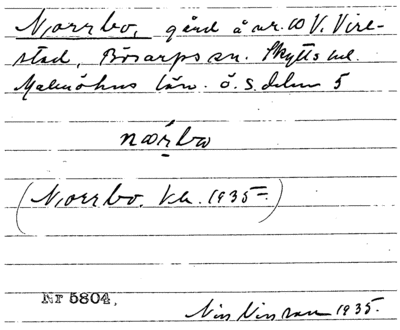 Norrbo, gård å nr. 10 V. Vire-
stad, Bösarps sn. Skytts hd.
Malmöhus län. ö. s. delen 5
(Norrbo. Kb. 1935)
Nr 5804.
Nils Nilsson 1935.